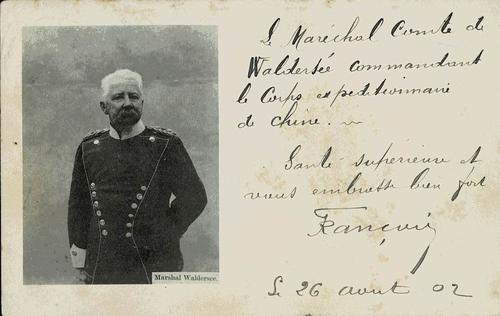 Le Maréchal Comte de
Waldersée commandant
le Corps expeditionnaire
de Chine.
Santé superieure et
vous embrasse bien fort
François
Le 26 avout 02
Marshal Waldersee.